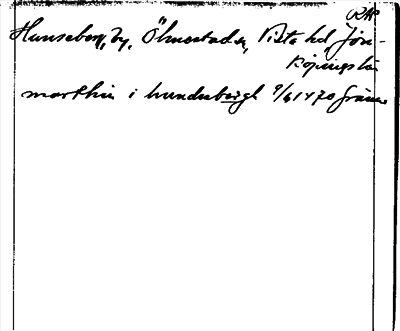 RAP
Hunseberg, by, Ölmestads sn, Vista hd, Jön-
köpings län
marthin i hundzbergh 9/6 1470 Gränna